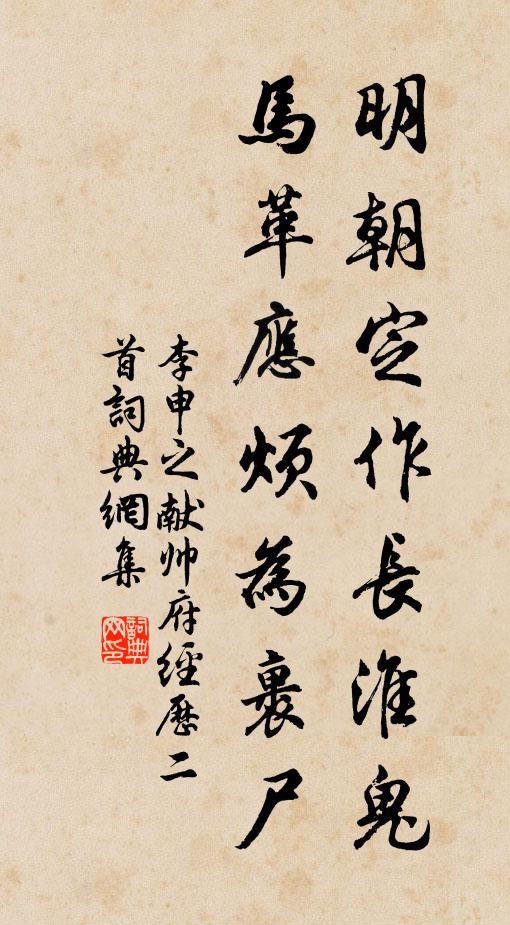 明朝定作長淮鬼
馬革應煩為裹尸
李申之献帅府經歷二
首詞典網集
詞典網印